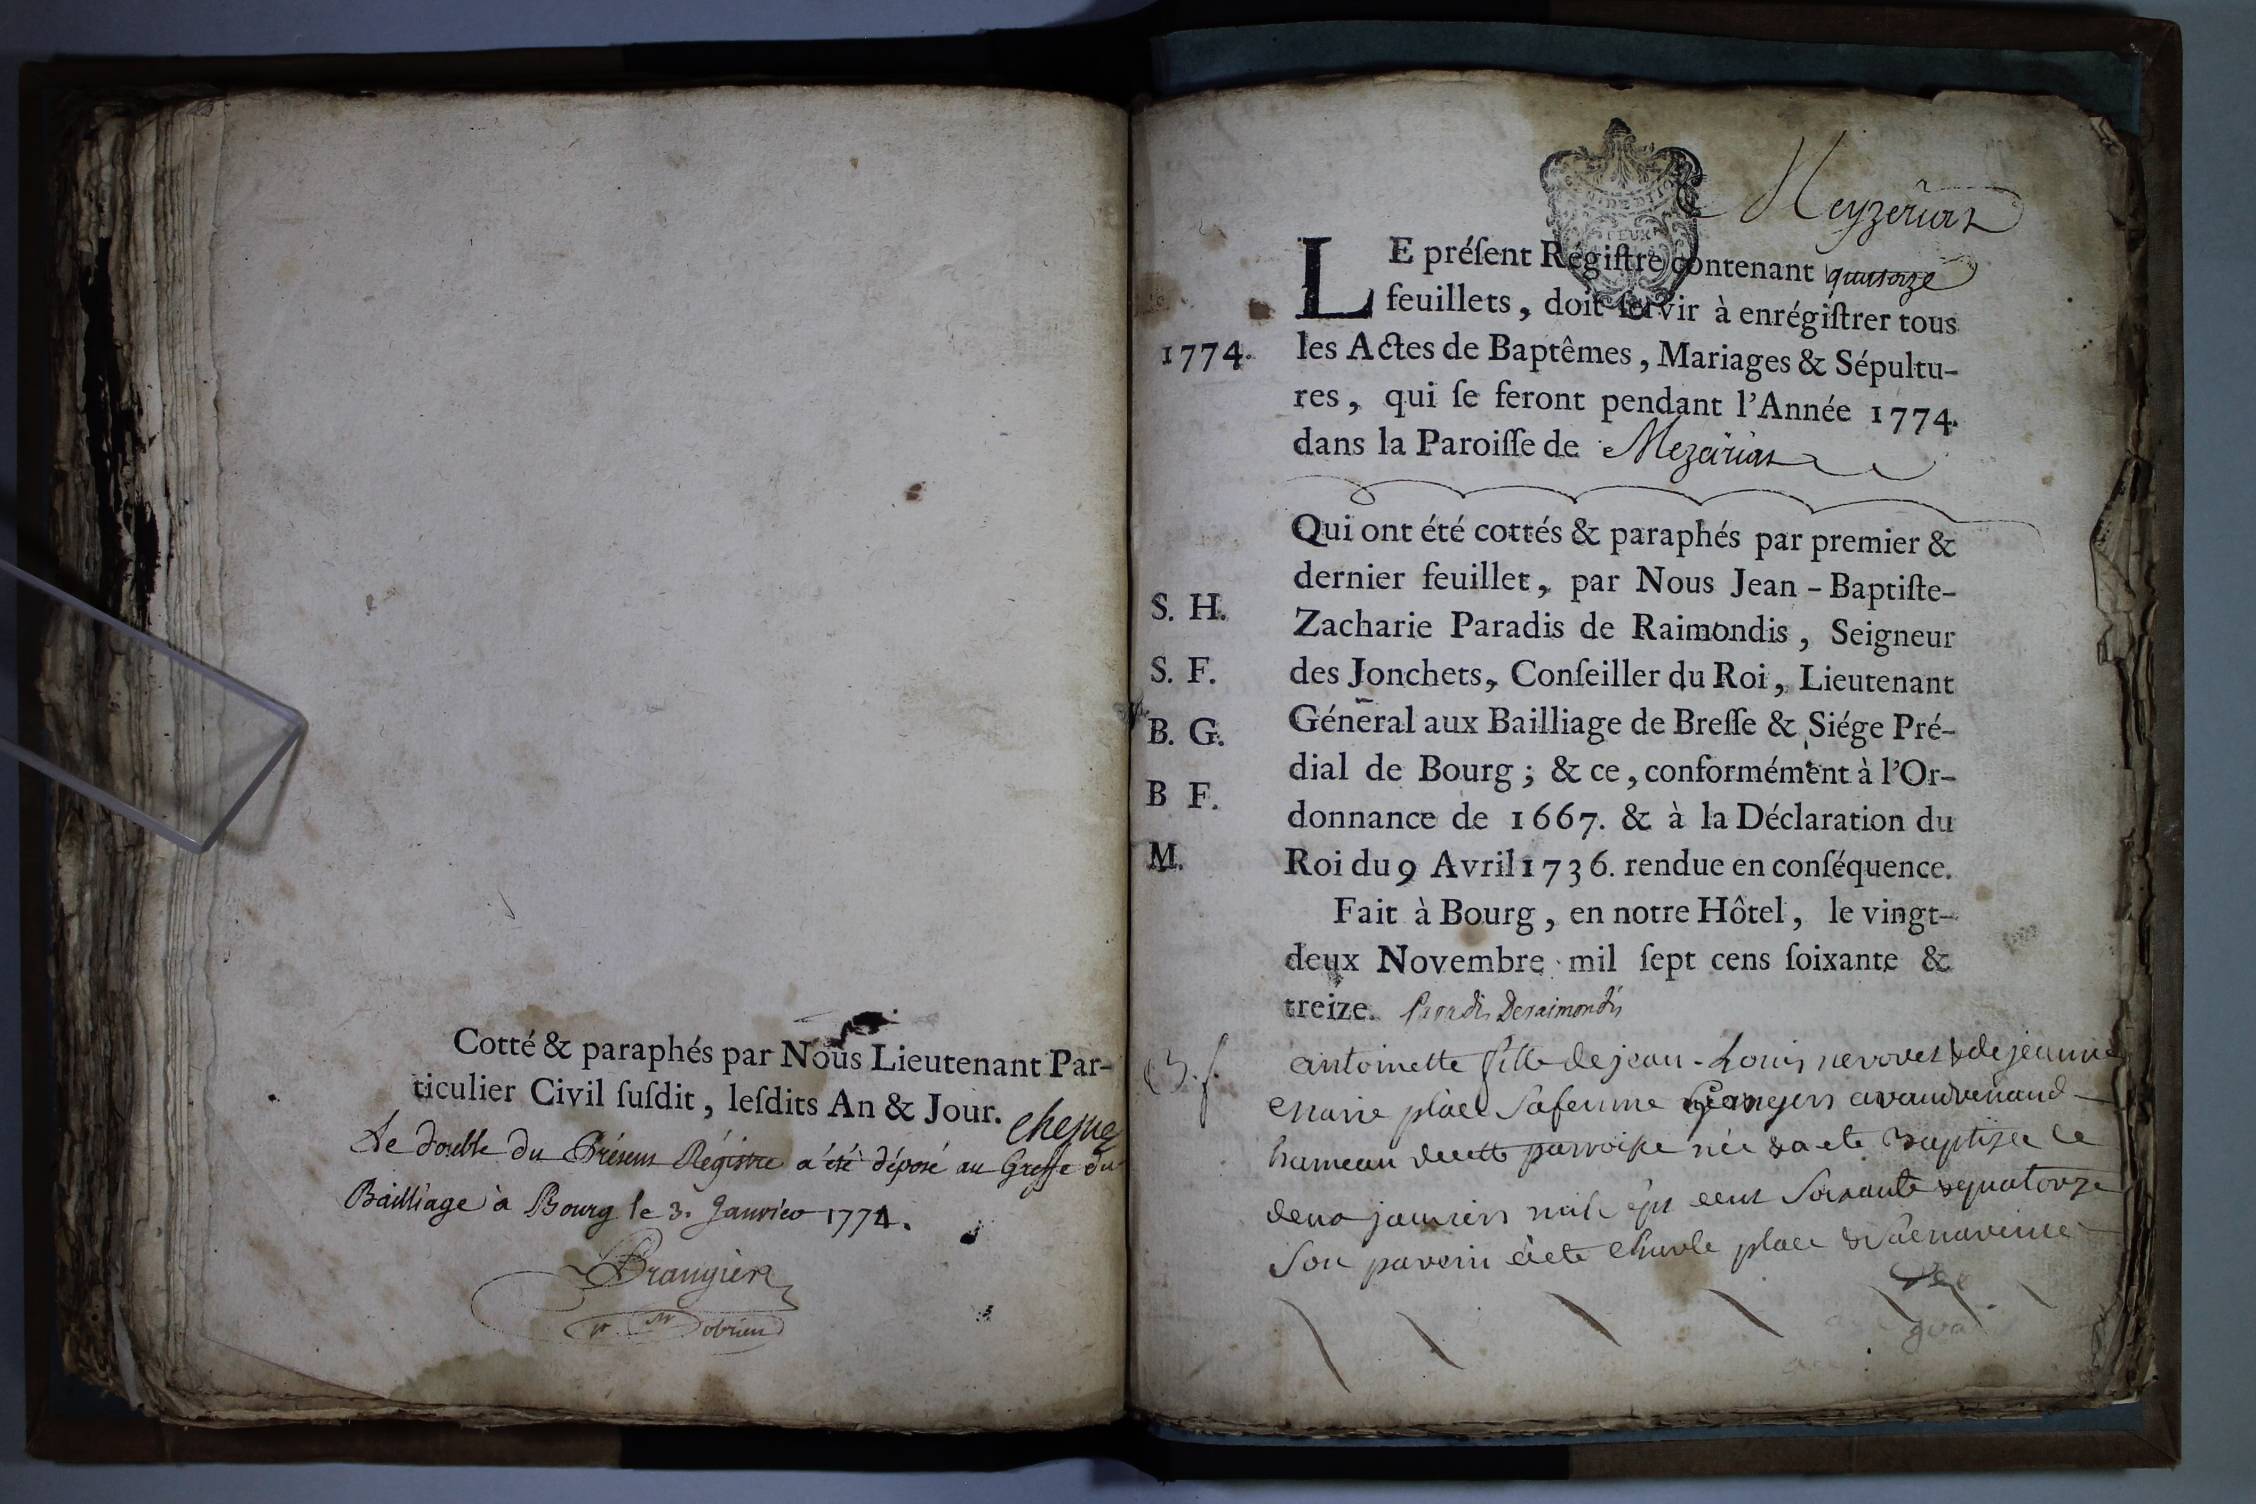 Cotté & paraphés par Nous Lieutenant Par-
ticulier Civil ſuſdit, leſdits An & Jour.
Le double du Présent Régistre a été déposé au Greffe du
Bailliage à Bourg le 3. Janvier 1774.
Meyzériat
LE préſent Régiſtre contenant quatorze
feuillets, doit ſervir à enrégiſtrer tous
1774. les Actes de Baptêmes, Mariages & Sépultu-
res, qui ſe feront pendant l'Année 1774.
dans la Paroiſſe de Mezériat
Qui ont été cottés & paraphés par premier &
dernier feuillet, par Nous Jean-Baptiſte-
S. H. Zacharie Paradis de Raimondis, Seigneur
S. F. des Jonchets, Conſeiller du Roi, Lieutenant
B. G. Général aux Bailliage de Breſſe & Siége Pré-
B F. dial de Bourg; & ce, conformément à l'Or-
donnance de 1667. & à la Déclaration du
M. Roi du 9 Avril 1736. rendue en conſéquence.
Fait à Bourg, en notre Hôtel, le vingt-
deux Novembre mil ſept cens ſoixante &
treize. Paradis Deraimondis
B. f. antoinette fille de jean-Louis & de jeanne
marie place Safemme
hameau decette parroisse née & a ete Baptisee le
deux janvier mil sept cent Soixante & quatorze
Son parein a ete Charle place & Sa mareine